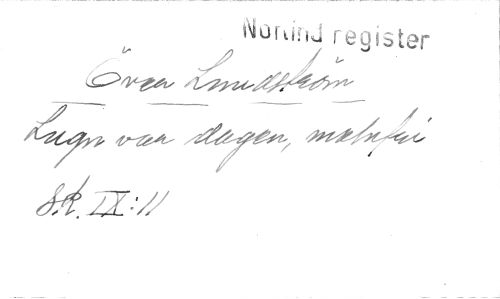 Norlind register
Över Lundström
Lugn var dagen, molnfri
S.P. IX:11